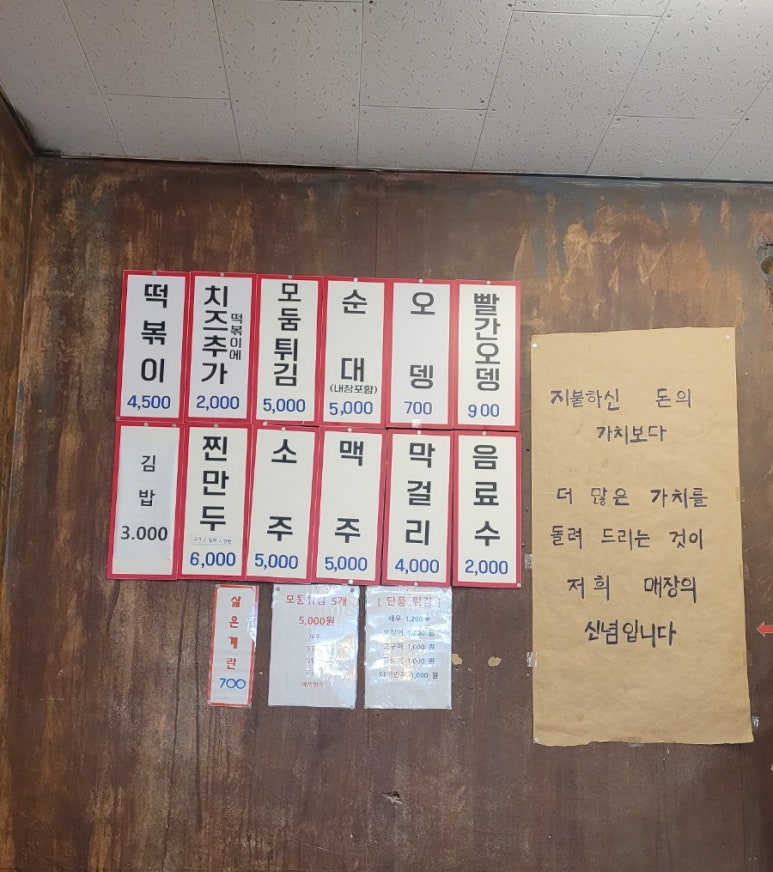 떡볶이
4,500
치즈추가
떡볶이에
2,000
모둠튀김
5,000
순대
(내장포함)
5,000
오뎅
700
빨간오뎅
900
김밥
3.000
찐만두
6,000
소주
5,000
맥주
5,000
막걸리
4,000
음료수
2,000
삶은계란
700
모둠튀김 5개
5,000원
새우
[ 단품 튀김 ]
새우 1,200원
오징어 1,200원
고구마 1,000원
김말이 1,000원
야끼만두 1,000 원
지불하신 돈의
가치보다
더 많은 가치를
돌려 드리는 것이
저희 매장의
신념입니다